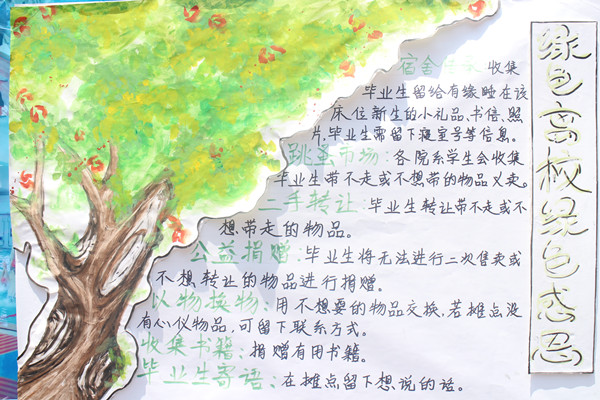 绿色离校绿色感恩
宿舍传承 收集
毕业生留给有缘睡在该
床位新生的小礼品、书信、照
片,毕业生需留下寝室号等信息。
跳蚤市场:各院系学生会收集
毕业生带不走或不想带的物品义卖。
二手转让:毕业生转让带不走或不
想带走的物品。
公益捐赠:毕业生将无法进行二次售卖或
不想转让的物品进行捐赠。
以物换物:用不想要的物品交换,若摊点没
有心仪物品,可留下联系方式。
收集书籍:捐赠有用书籍。
毕业生寄语:在摊点留下想说的话。